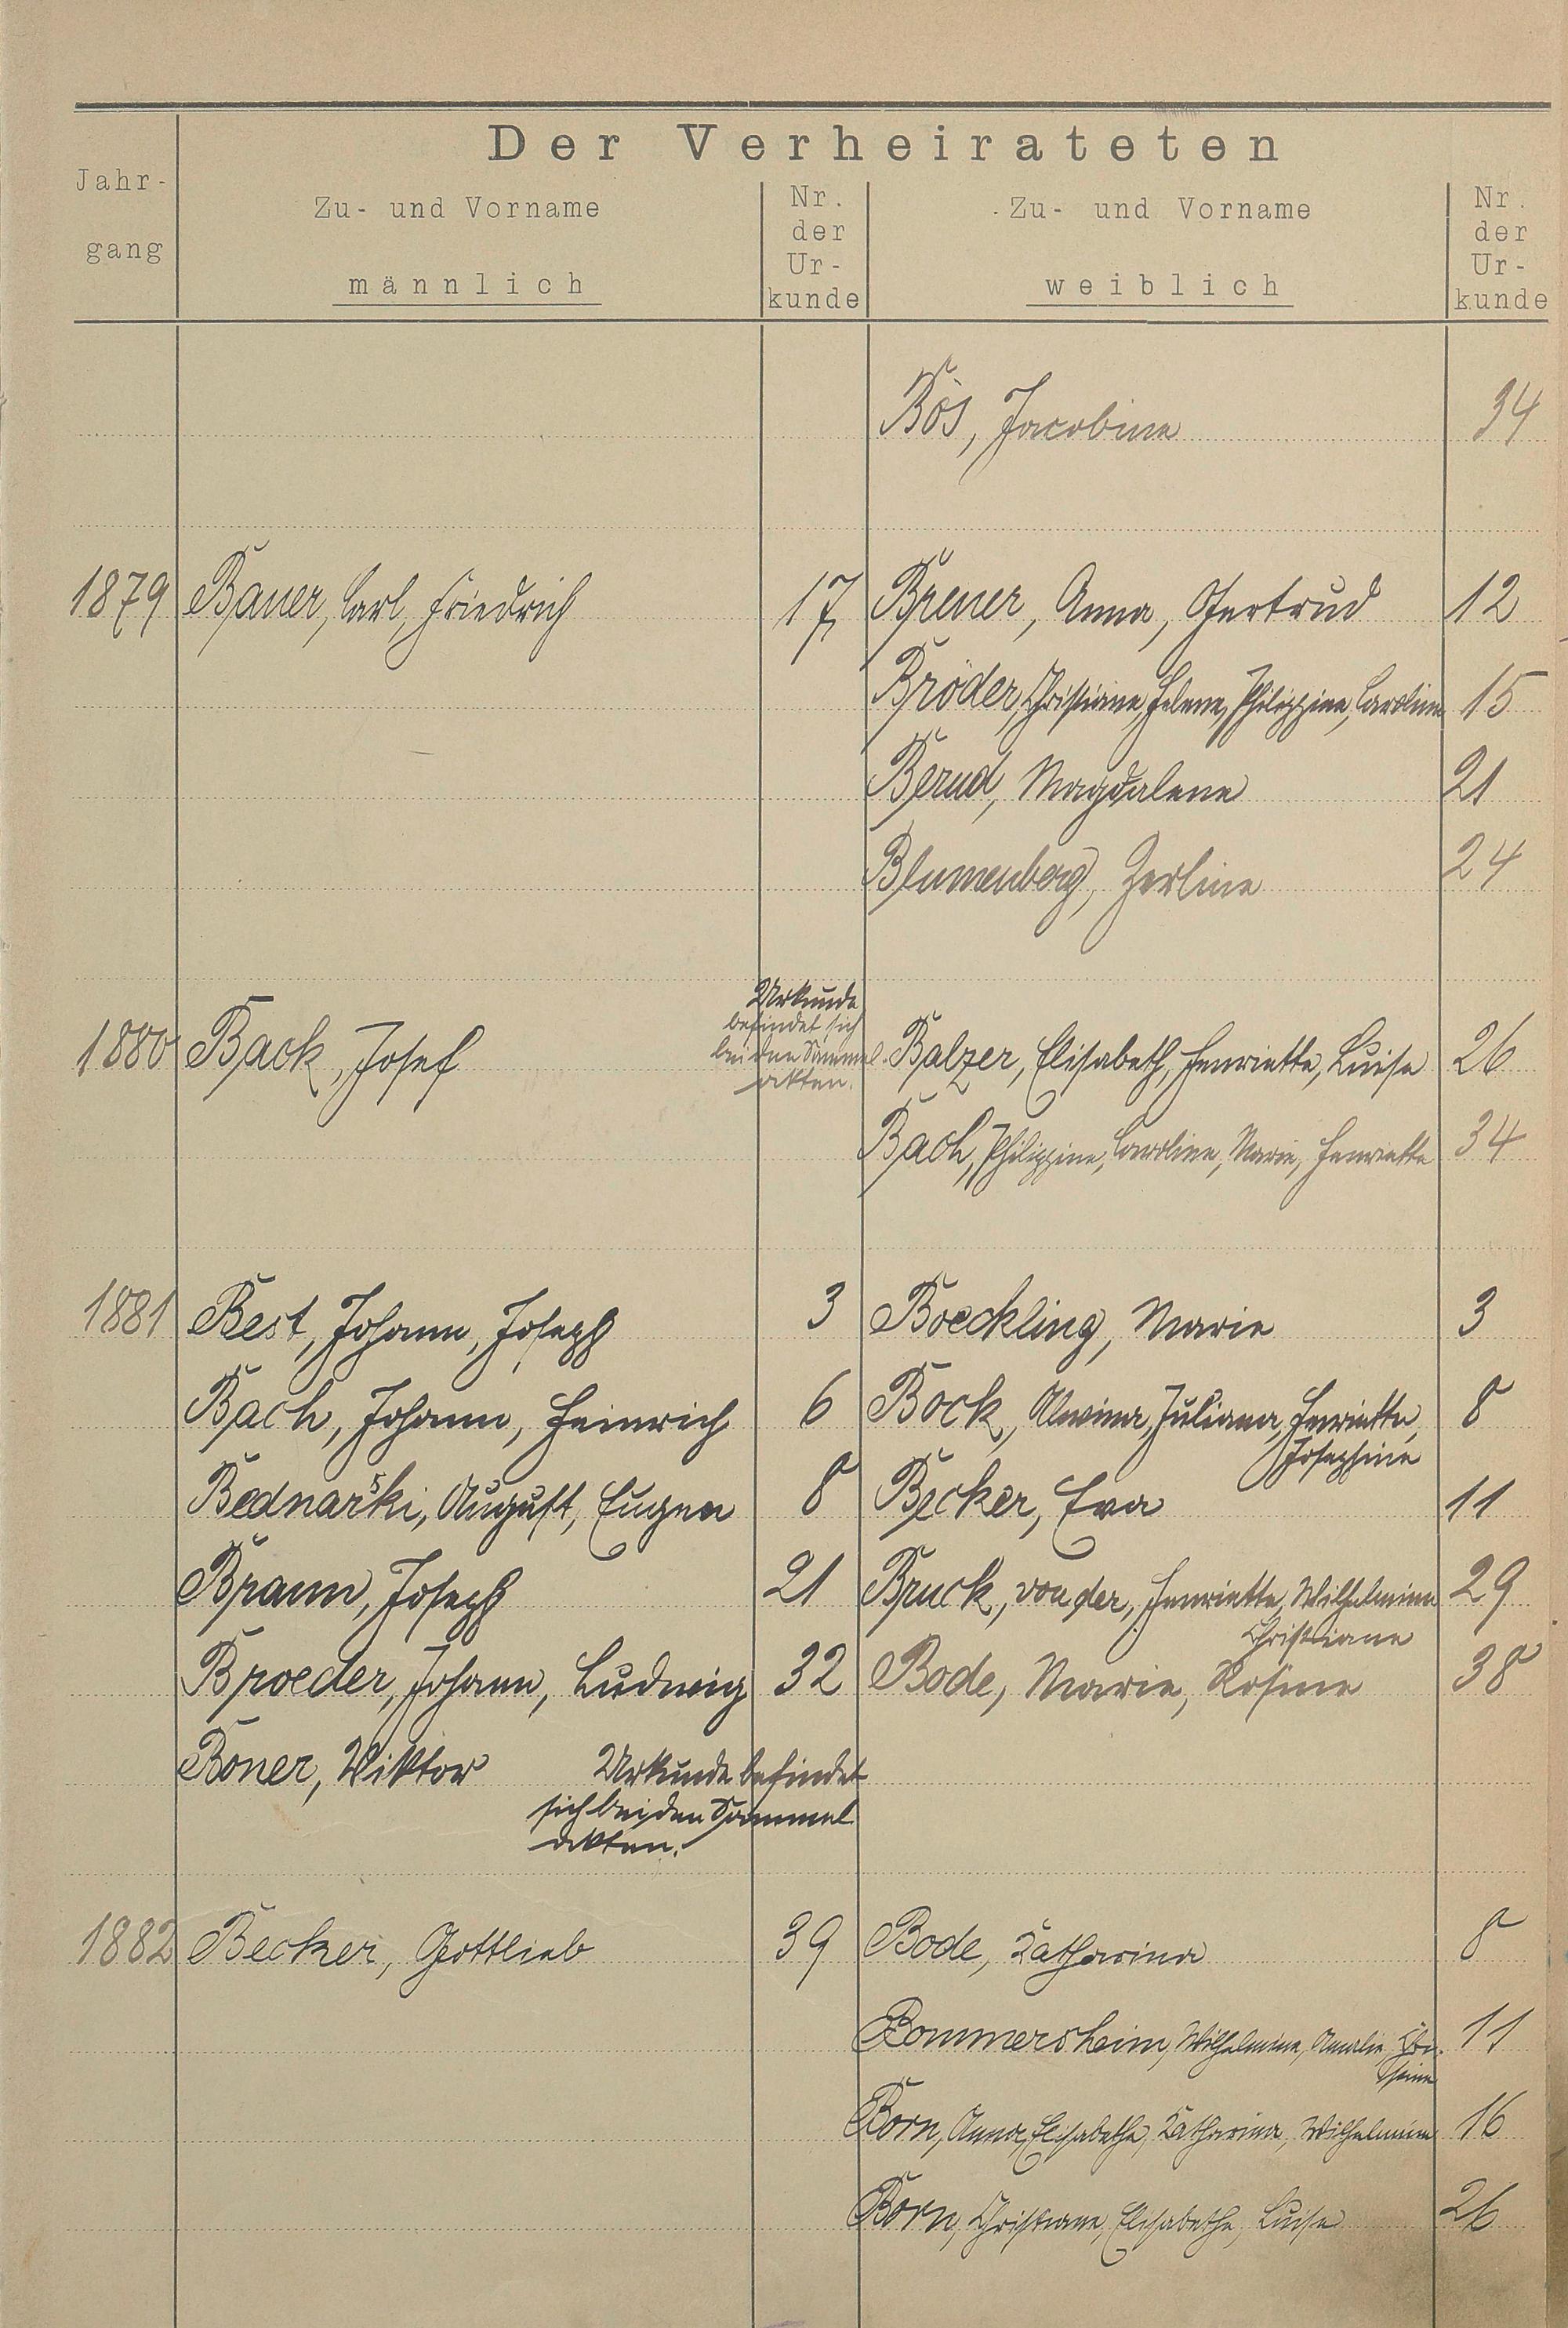 Der Verheirateten
Jahr-
gang
Zu- und Vorname
männlich
Nr.
der
Ur-
kunde
Zu- und Vorname
weiblich
Nr.
der
Ur-
kunde
Bös, Jacobine 34
1879 Bauer, Carl, Friedrich 17 Breuer, Anna, Gertrud 12
Bröder, Christiane, Helene, Philippine, Caroline 15
Bernd, Magdalene 21
Blumenberg, Zerline 24
Urkunde
befindet sich
bei den Sammel-
akten.
1880 Back, Josef Balzer, Elisabeth, Henriette, Luise 26
Bach, Philippine, Caroline, Marie, Henriette 34
1881 Best, Johann, Joseph 3 Boeckling, Marie 3
Bach, Johann, Heinrich 6 Bock, Alwina, Juliana, Henriette, 8
Josephine
Bednarski, August, Eugen 8 Becker, Eva 11
Braun, Joseph 21 Bruck, von der, Henriette, Wilhelmine 29
Christiane
Broeder, Johann, Ludwig 32 Bode, Marie, Rosine 38
Boner, Viktor Urkunde befindet
sich bei den Sammel
akten.
1882 Becker, Gottlieb 39 Bode, Katharina 8
Bommersheim, Wilhelmine, Amalie, Chri- 11
stine
Born, Anna, Elisabethe, Katharina, Wilhelmine 16
Born, Christiane, Elisabethe, Luise 26